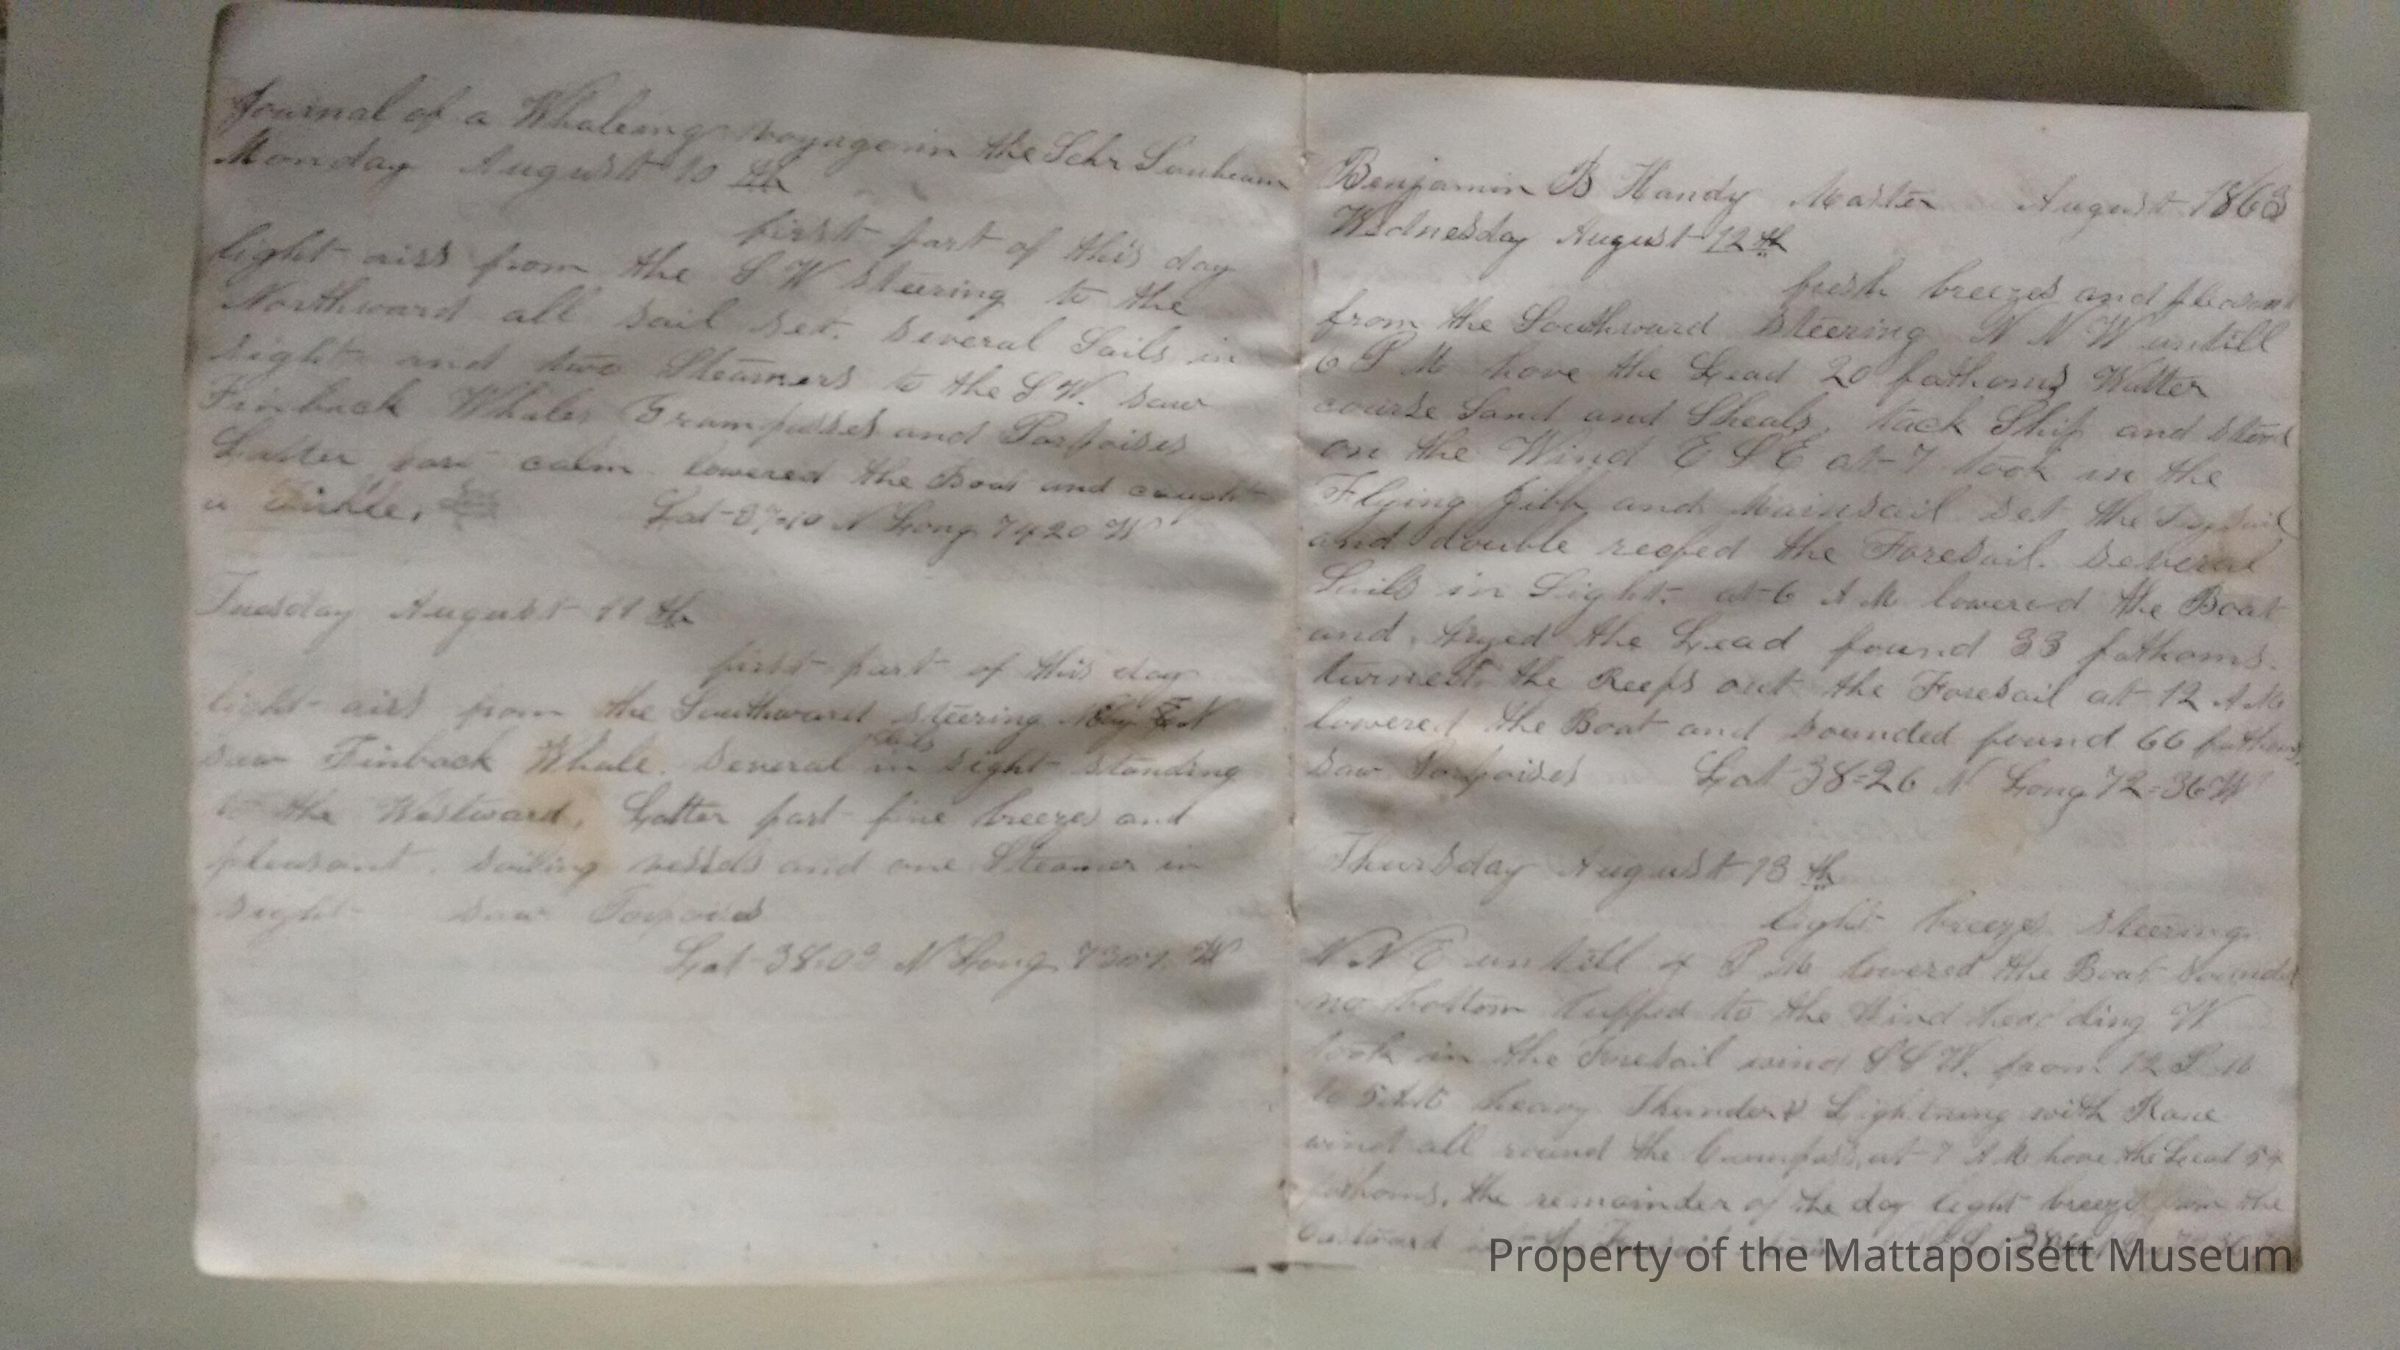 Journal of a Whaleing voyage in the Schr Sunbeam
Monday August 10 th
first part of this day
light airs from the S W steering to the
Northward all sail set. several Sails in
sight and two Steamers to the S W. saw
Finback Whales Grampusses and Porpoises
Latter part calm lowered the Boat and caught
a
Lat 37-10 N Long 7420 W
Tuesday August 11 th
first part of this day
light airs from the Southward steering
saw Finback Whale. several sails in sight standing
to the Westward. Latter part fine breezes and
pleasant. sailing vessels and one Steamer in
sight saw Porpoises
Lat 38.0 N Long W
Benjamin B Handy Master August 1868
Wednesday August 12 th
fresh breezes and pleasant
from the Southward steering N N W untill
6 P M hove the Lead 20 fathoms Watter
course Sand and Sheals. tack Ship and stood
on the Wind E S E at 7 took in the
Flying Jibb and Mainsail set the Trysail
and double reefed the Foresail. several
Sails in Sight. at 6 A M lowered the Boat
and tryed the Lead found 33 fathoms.
turned the Reefs out the Foresail at 12 A M
lowered the Boat and sounded found 66 fathoms,
saw Porpoises Lat 38=26 N Long 72=36 W
Thursday August 13 th
light breezes steering
N N E untill 4 P M lowered the Boat sounded
no bottom luffed to the Wind heading W
took in the Foresail wind S S W. from 12 P M
to 5 heavy Thunder & Lightning with Rane
wind all round the Cumpass, at 7 A M hove the Lead 54
fathoms. the remainder of the day light breezes from the
Eastward
Property of the Mattapoisett Museum